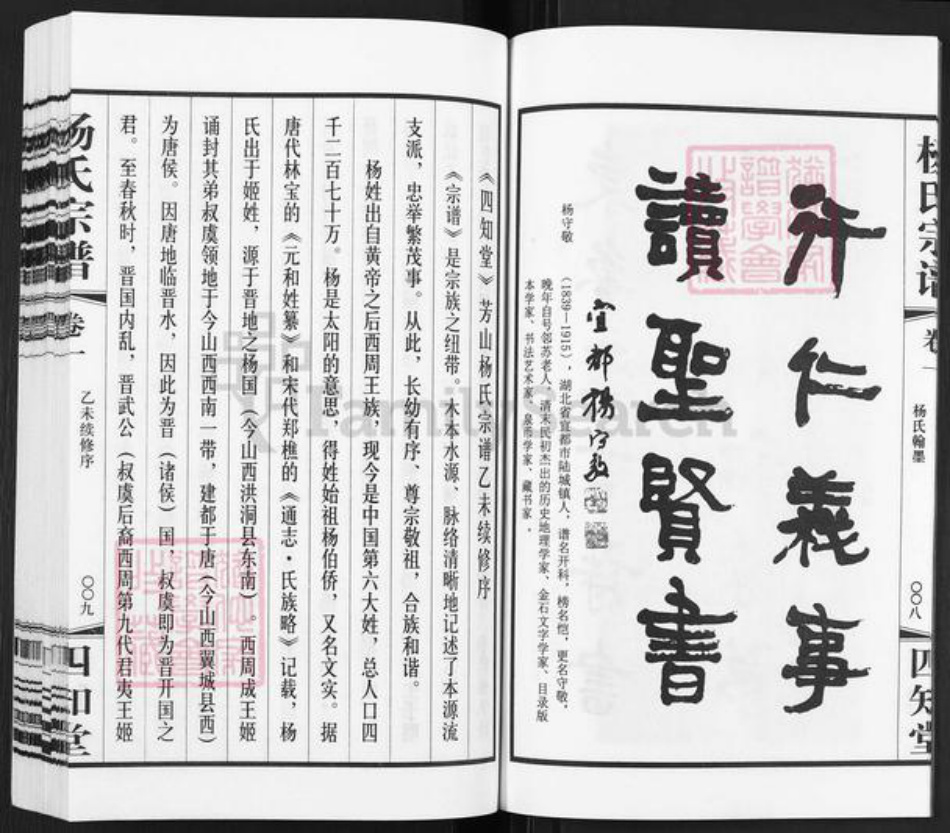 杨氏宗谱
卷一
杨氏翰墨
〇〇八
四知堂
行仁義事
讀聖賢書
宜都楊守敬
杨守敬
（1839—1915），湖北省宜都市陆城镇人，谱名开科，榜名恺，更名守敬，
晚年自号邻苏老人。清末民初杰出的历史地理学家、金石文字学家、目录版
本学家、书法艺术家、泉币学家、藏书家。
《四知堂》芳山杨氏宗谱乙未续修序
《宗谱》是宗族之纽带。木本水源、脉络清晰地记述了本源流
支派，忠举繁茂事。从此，长幼有序、尊宗敬祖，合族和谐。
杨姓出自黄帝之后西周王族，现今是中国第六大姓，总人口四
千二百七十万。杨是太阳的意思，得姓始祖杨伯侨，又名文实。据
唐代林宝的《元和姓纂》和宋代郑樵的《通志·氏族略》记载，杨
氏出于姬姓，源于晋地之杨国（今山西洪洞县东南）。西周成王姬
诵封其弟叔虞领地于今山西西南一带，建都于唐（今山西翼城县西）
为唐侯。因唐地临晋水，因此为晋（诸侯）国，叔虞即为晋开国之
君。至春秋时，晋国内乱，晋武公（叔虞后裔西周第九代君夷王姬
杨氏宗谱
卷一
乙未续修序
〇〇九
四知堂
FamilySearch